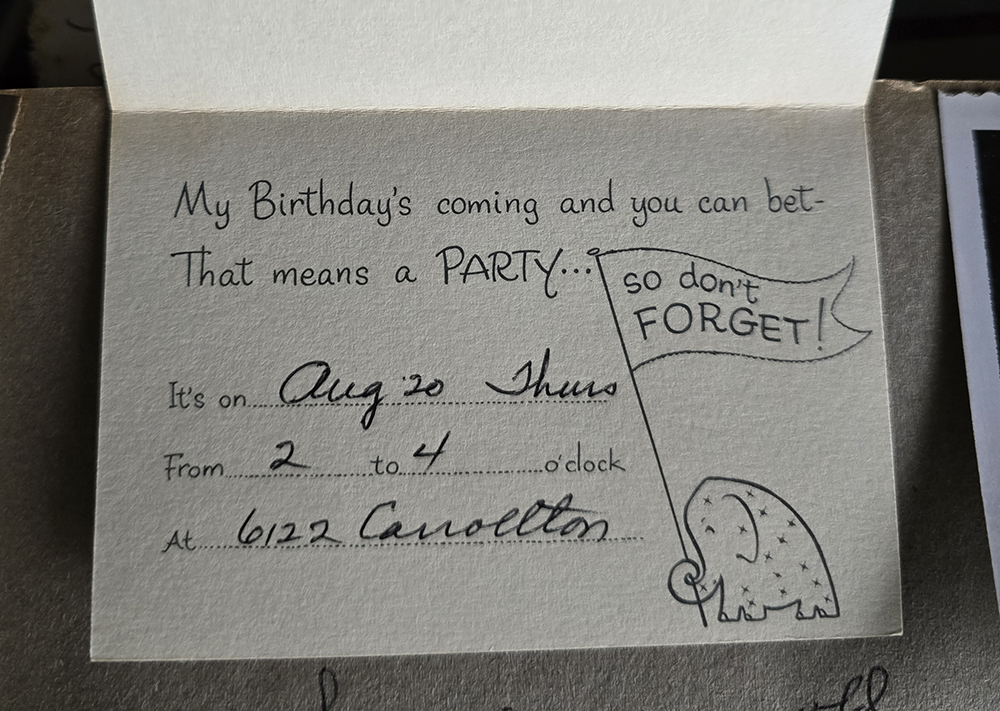 My Birthday's coming and you can bet-
That means a PARTY...
so don't
FORGET!
It's on Aug 20 Thurs
From 2 to 4 o'clock
At 6122 Carrollton